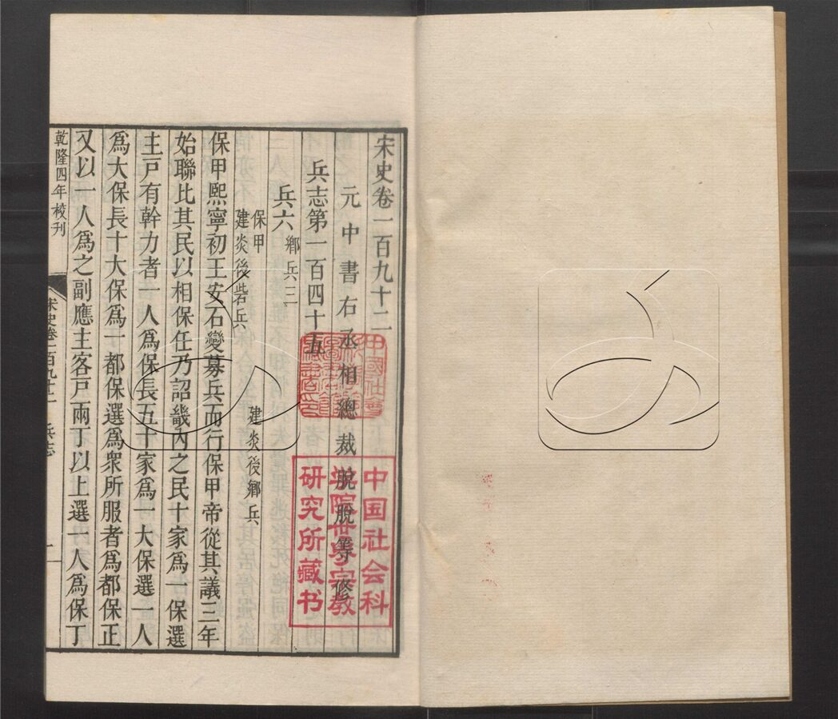 宋史卷一百九十二
元中書右丞相總裁脫脫等修
兵志第一百四十五
兵六鄉兵三
保甲
建炎後鄉兵
建炎後砦兵
保甲熙寧初王安石變募兵而行保甲帝從其議三年
始聯比其民以相保任乃詔畿內之民十家為一保選
主戶有幹力者一人為保長五十家為一大保選一人
為大保長十大保為一都保選為衆所服者為都保正
又以一人為之副應主客戶兩丁以上選一人為保丁
乾隆四年校刊
宋史卷一百九十二 兵志
一
中国社会科
學院世界宗教
研究所藏书